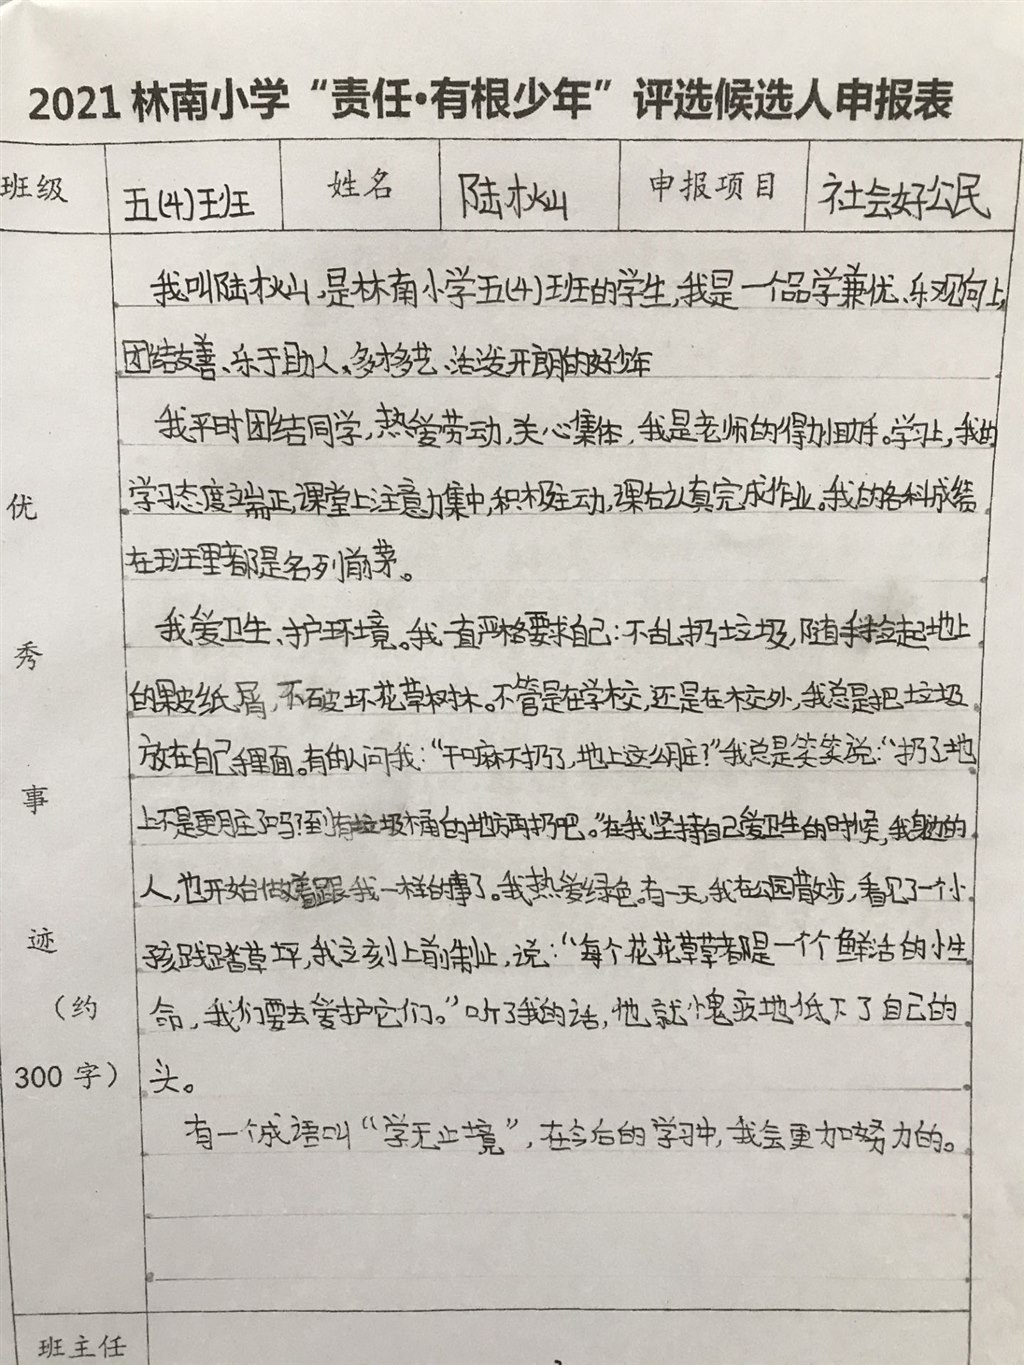 2021 林南小学“责任·有根少年”评选候选人申报表
班级 五(4)班 姓名 陆杕山 申报项目 社会好公民
优秀事迹（约300字）
我叫陆杕山,是林南小学五(4)班的学生,我是一个品学兼优、乐观向上,
团结友善、乐于助人、多才多艺、活泼开朗的好少年
我平时团结同学,热爱劳动,关心集体,我是老师的得力助手。学习上,我的
学习态度端正,课堂上注意力集中,积极主动,课后认真完成作业。我的各科成绩
在班里都是名列前茅。
我爱卫生、护环境。我一直严格要求自己:不乱扔垃圾,随手捡起地上
的果皮纸屑,不破坏花草树木。不管是在学校,还是在校外,我总是把垃圾
放在自己手里面。有的人问我:“干嘛不扔了,地上这么脏?”我总是笑笑说:“扔了地
上不是更脏了吗?到有垃圾桶的地方再扔吧。”在我坚持自己爱卫生的时候,我身边的
人,也开始做着跟我一样的事了。我热爱绿色。有一天,我在公园散步,看见了一个小
孩践踏草坪,我立刻上前制止,说:“每个花花草草都是一个个鲜活的小生
命,我们要去爱护它们。”听了我的话,他就愧疚地低下了自己的
头。
有一个成语叫“学无止境”,在今后的学习中,我会更加努力的。
班主任